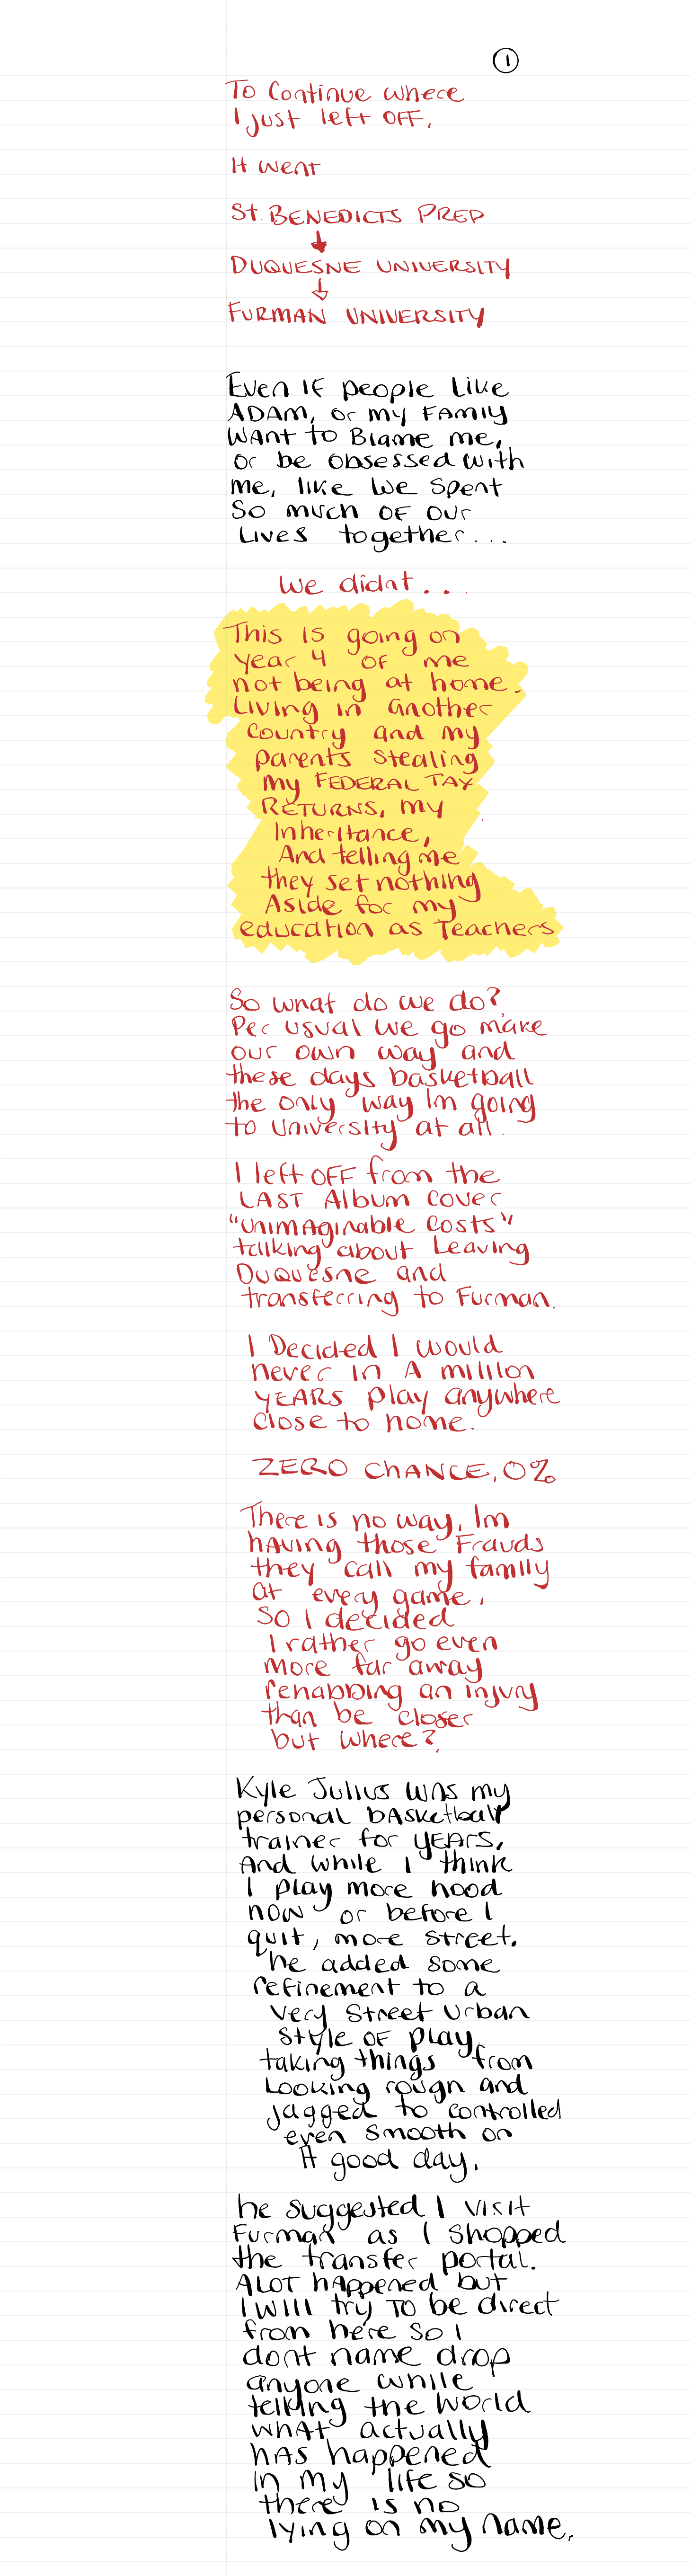 1
To Continue where
I just left OFF.
It went
St. BENEDICTS PREP
DUQUESNE UNIVERSITY
FURMAN UNIVERSITY
Even IF people Like
ADAM, or my FAMIly
WANt to Blame me,
or be obsessed with
me, like we spent
So much OF our
Lives together...
we didnt...
This is going on
year 4 of me
not being at home.
Living in another
Country and my
parents stealing
my FEDERAL TAX
RETURNS, my
Inheritance,
And telling me
they set nothing
Aside for my
education as Teachers
So what do we do?
Per usual we go make
our own way and
these days basketball
the only way Im going
to University at all.
I left OFF from the
LAST Album cover
"UNIMAginable Costs"
talking about Leaving
DUQuesne and
transferring to Furman.
I Decided I would
never in A million
YEARS play anywhere
Close to home.
ZERO CHANCE, 0%
There is no way, Im
hAving those Frauds
they call my family
at every game,
SO I decided
I rather go even
more far away
rehabbing an injury
than be closer
but where?
Kyle Julius was my
personal bASketball
trainer for YEARS,
And while I think
I play more hood
now or before I
quit, more street.
he added some
refinement to a
very Street Urban
Style OF play,
taking things from
Looking rough and
jagged to controlled
even smooth on
A good day.
he suggested I visit
Furman as I shopped
the transfer portal.
ALOT hAppened but
I will try TO be direct
from here so I
dont name drop
anyone while
telling the world
whAt actually
hAS happened
in my life so
there is no
lying on my name.